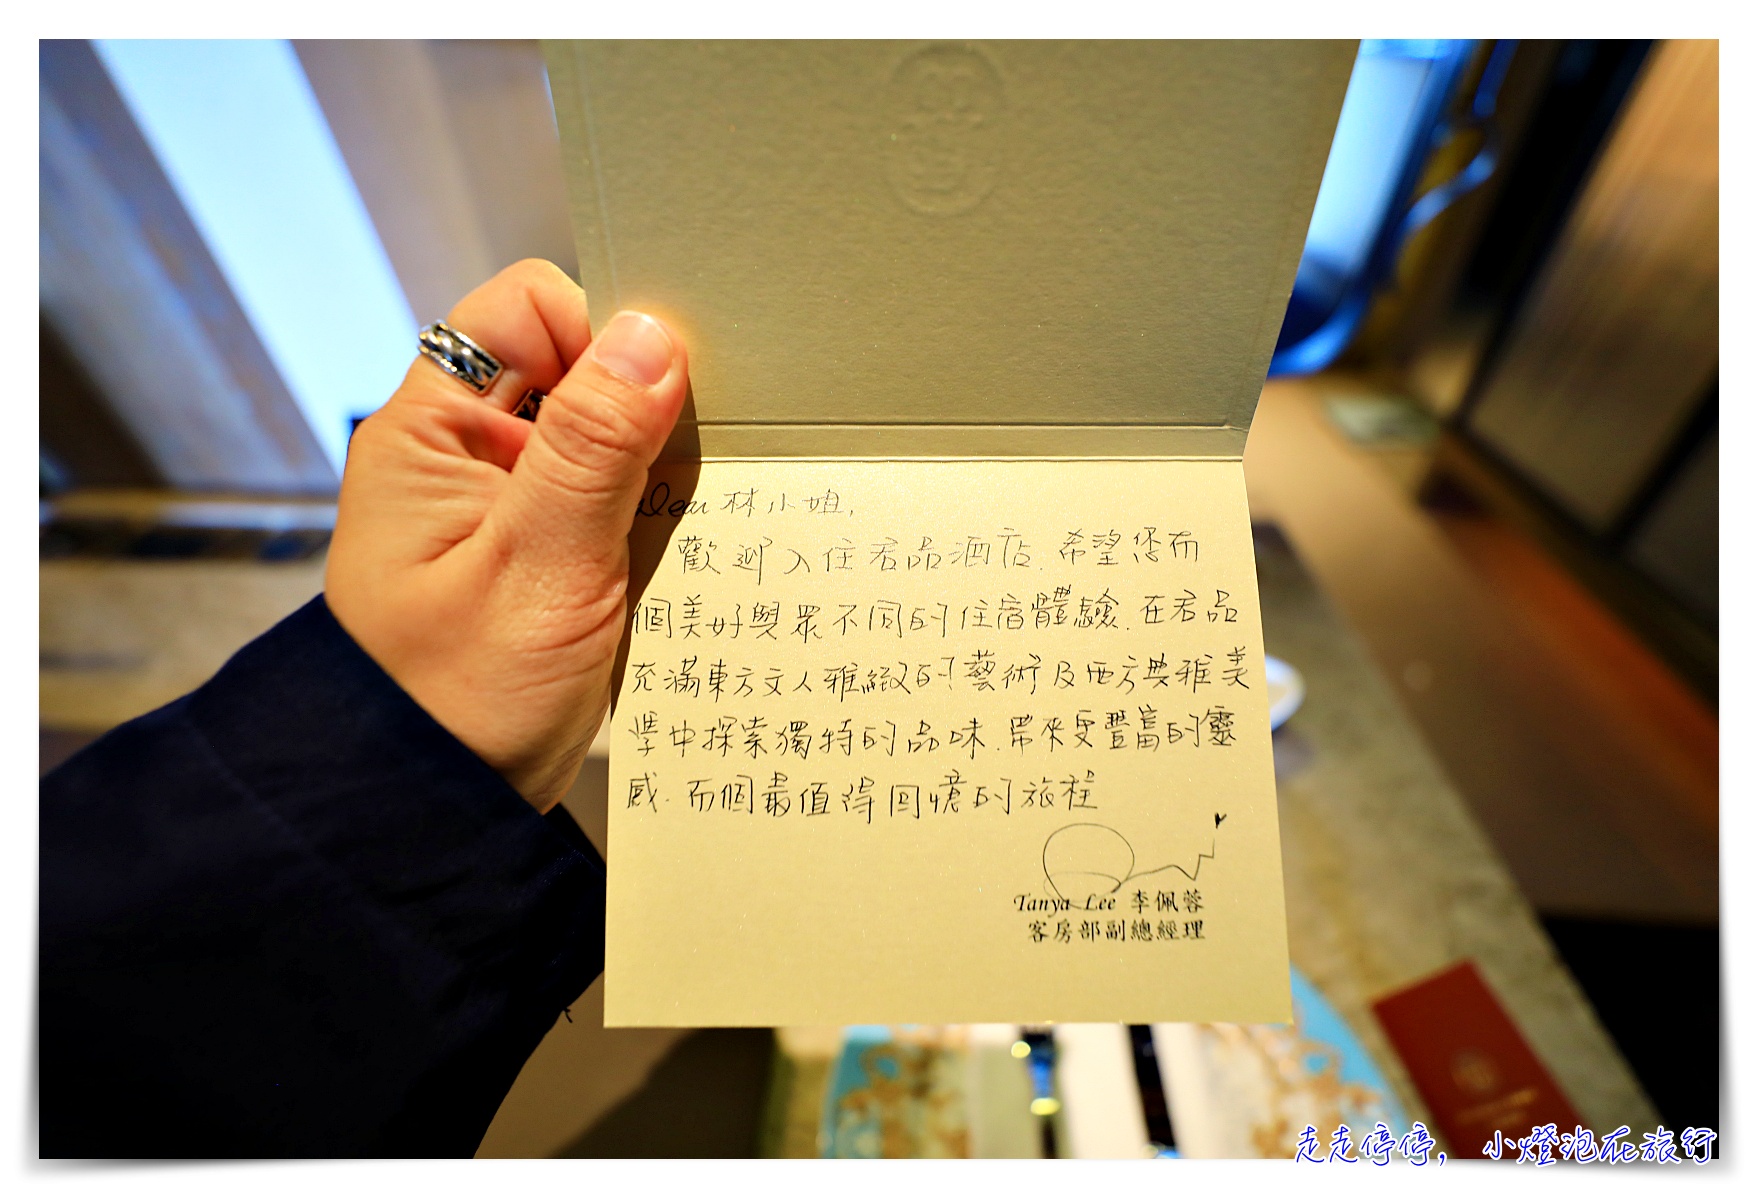 Dear 林小姐,
歡迎入住君品酒店.希望您有
個美好與眾不同的住宿體驗.在君品
充滿東方文人雅緻的藝術及西方典雅美
學中探索獨特的品味.帶來更豐富的靈
感.有個最值得回憶的旅程
Tanya Lee 李佩蓉
客房部副總經理
走走停停, 小燈泡在旅行